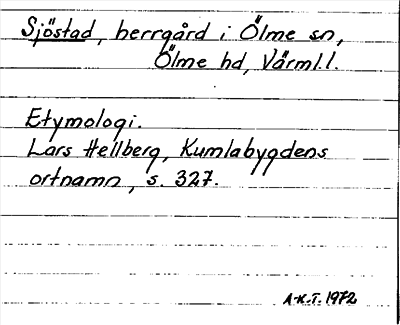 Sjöstad, herrgård i Ölme sn,
Ölme hd, Värml.l.
Etymologi.
Lars Hellberg, Kumlabygdens
ortnamn, s. 327.
A-K.T. 1972